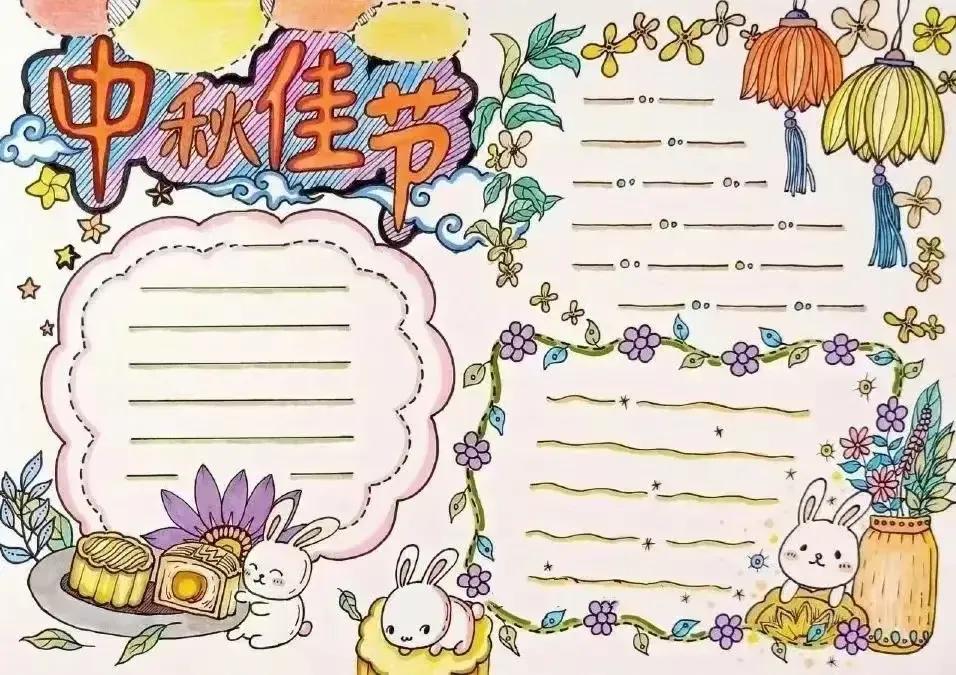 中秋佳节